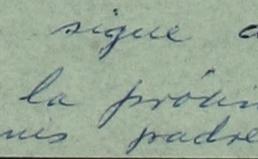 sigue a
la próxi
mis padre